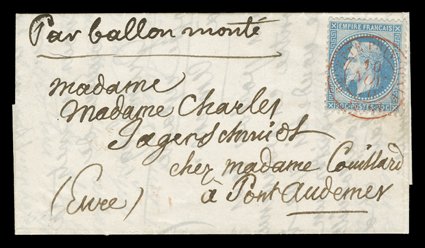 Par ballon monté
EMPIRE FRANÇAIS
madame
madame Charles
Jagerschmidt
chez madame Couillard
(Eure) à Pont Audemer